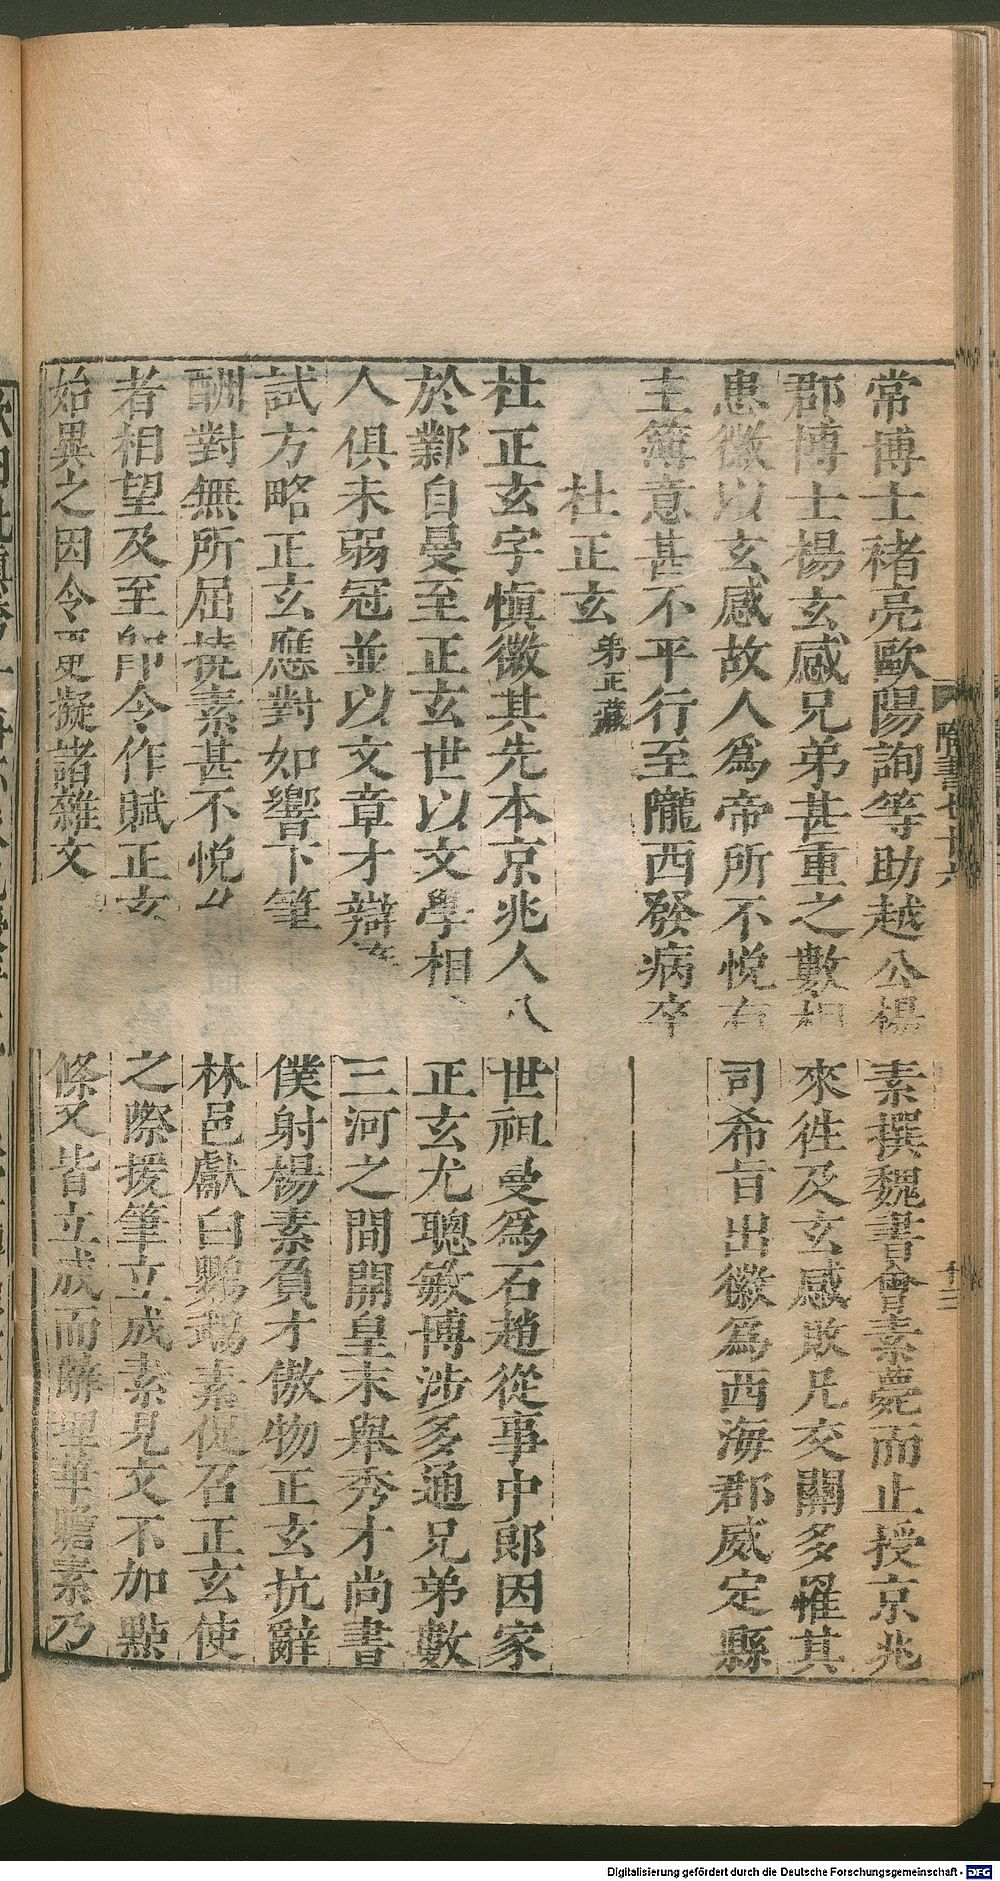 常博士褚亮歐陽詢等助越公楊素撰魏書會素薨而止授京兆
郡博士楊玄感兄弟甚重之數相來往及玄感敗凡交關多罹其
患徽以玄感故人為帝所不悅有司希旨出徽為西海郡威定縣
主簿意甚不平行至隴西發病卒
杜正玄 弟正藏
杜正玄字慎徽其先本京兆人八世祖曼為石趙從事中郎因家
於鄴自曼至正玄世以文學相正玄尤聰敏博涉多通兄弟數
人俱未弱冠並以文章才辯三河之間開皇末舉秀才尚書
試方略正玄應對如響下筆僕射楊素負才傲物正玄抗辭
酬對無所屈撓素甚不悅久林邑獻白鸚鵡素促召正玄使
者相望及至即令作賦正玄之際援筆立成素見文不加點
始異之因令更擬諸雜文條又皆立成而辭理華贍素乃
隋書七十六
十三
Digitalisierung gefördert durch die Deutsche Forschungsgemeinschaft - DFG